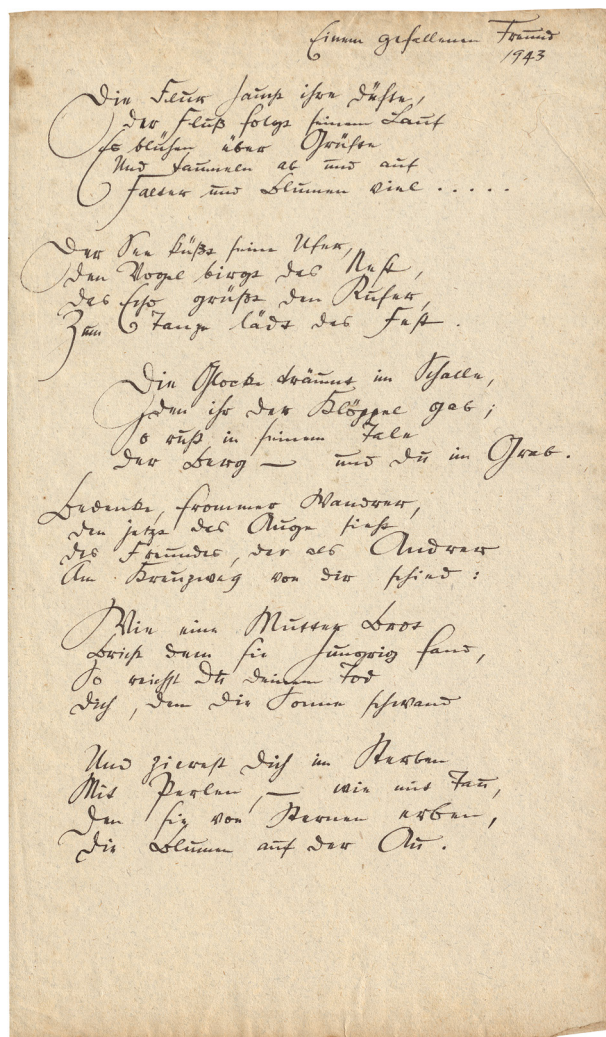 Einem gefallenen Freund
1943
Die Flur haucht ihre Düfte,
der Fluß folgt seinem Lauf
Es blühen über Grüfte
Und taumeln ab und auf
Falter und Blumen viel . . . . .
Der See küßt seine Ufer,
den Vogel birgt das Nest,
das Echo grüßt den Rufer,
Zum Tanze lädt das Fest.
Die Glocke träumt im Schalle,
den ihr der Klöppel gab;
So ruht in seinem Tale
der Berg — und du im Grab.
Bedenke, frommer Wandrer,
den jetzt das Auge sieht
des Freundes, der als Andrer
Am Kreuzweg von dir schied:
Wie eine Mutter Brot
Bricht dem sie hungrig fand,
So reichst Du deinem Tod
dich, dem die Sonne schwand
Und zierest dich im Sterben
Mit Perlen, — wie mit Tau,
den sie von Sternen erben,
die Blumen auf der Au.